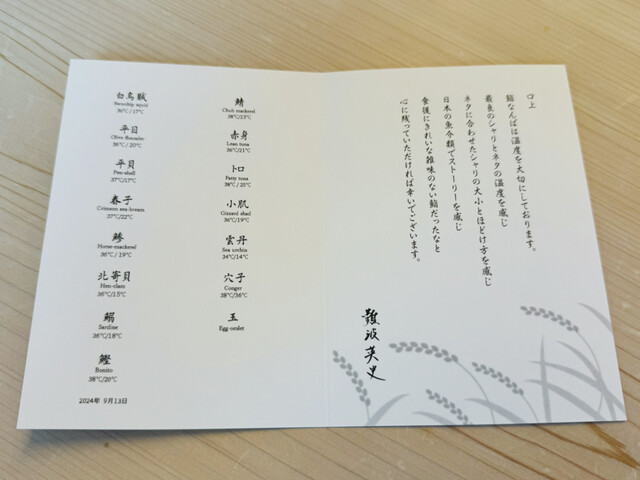 白烏賊
Swordtip squid
36℃ / 17℃
平目
Olive flounder
36℃ / 20℃
平貝
Pen-shell
37℃/17℃
春子
Crimson sea-bream
37℃/22℃
鯵
Horse-mackerel
36℃ / 19℃
北寄貝
Hen-clam
36℃/15℃
鰯
Sardine
36℃/18℃
鰹
Bonito
38℃/20℃
2024年 9月13日
鯖
Chub mackerel
38℃/23℃
赤身
Lean tuna
36℃/21℃
トロ
Fatty tuna
38℃ / 25℃
小肌
Gizzard shad
36℃/19℃
雲丹
Sea urchin
34℃/14℃
穴子
Conger
38℃/36℃
玉
Egg-omlet
口上
鮨なんばは温度を大切にしております。
最良のシャリとネタの温度を感じ
ネタに合わせたシャリの大小とほどけ方を感じ
日本の魚介類でストーリーを感じ
食後にきれいな雑味のない鮨だったなと
心に残っていただければ幸いでございます。
難波英史